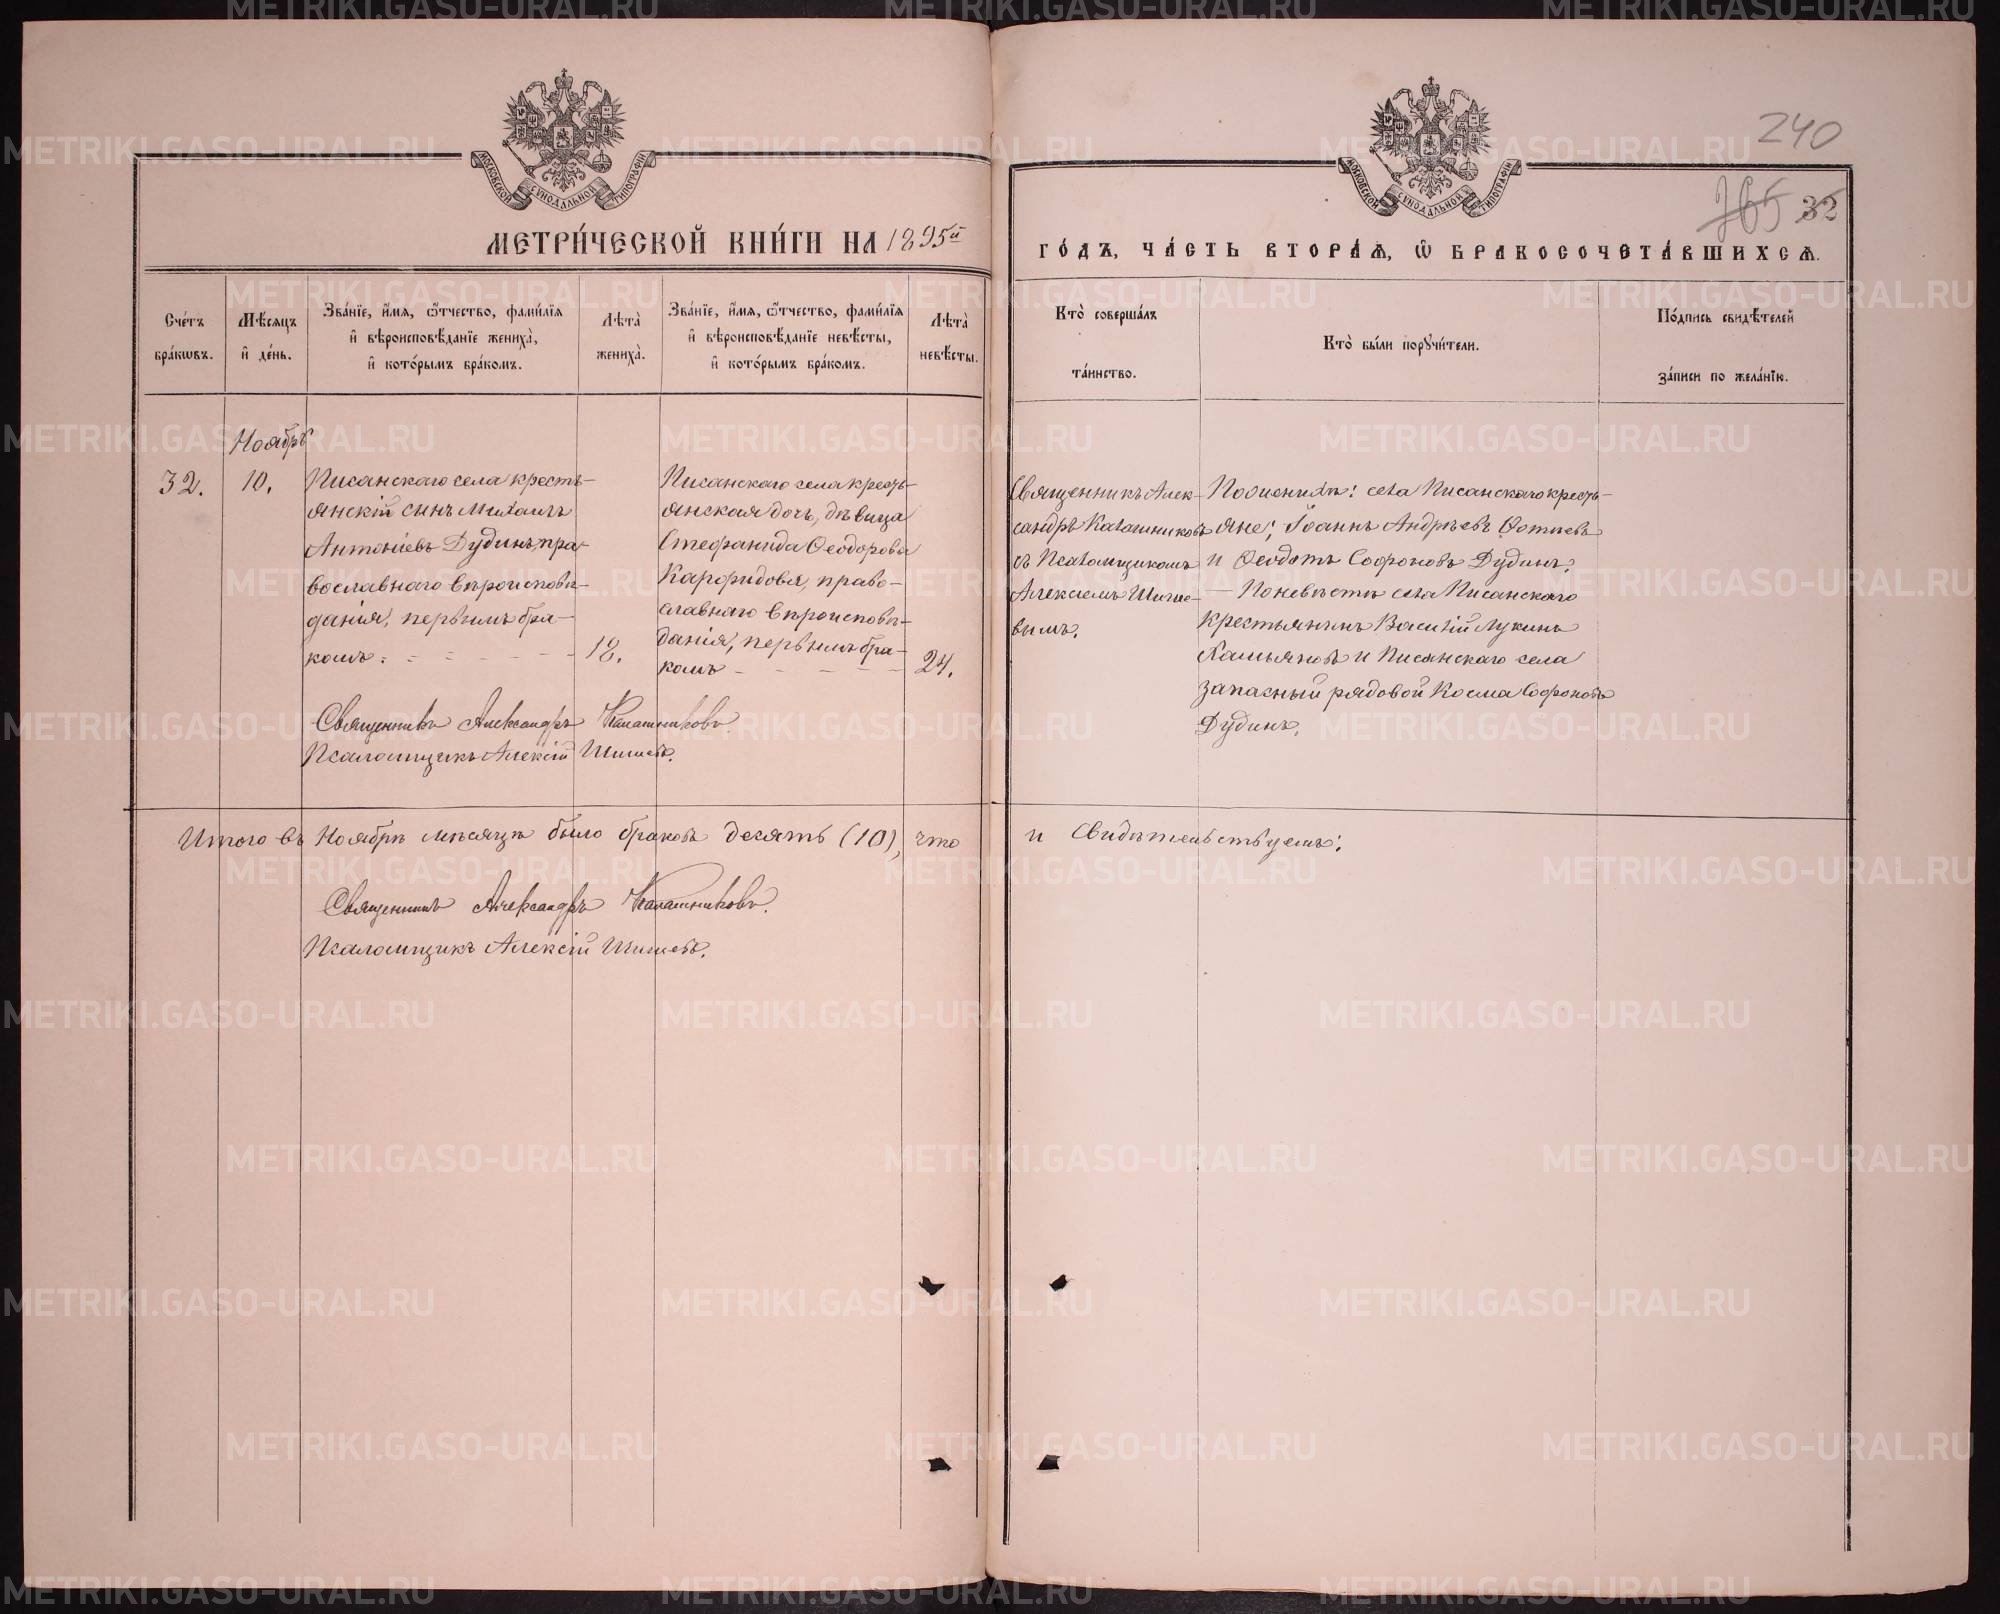 240
365 32
МОСКОВСКОЙ СѴНОДАЛЬНОЙ ТИПОГРАФІИ
МОСКОВСКОЙ СѴНОДАЛЬНОЙ ТИПОГРАФІИ
МЕТРИ́ЧЕСКОЙ КНИ́ГИ НА 1895й
ГО́ДЪ, ЧА́СТЬ ВТОРА́Ѧ, Ѽ БРАКОСОЧЕТА́ВШИХСѦ.
Сче́тъ
бра́кωвъ.
Мѣ́сяцъ
и҆ де́нь.
Зва́нїе, и҆́мѧ, ѻ҆́тчество, фами́лїѧ
и҆ вѣроисповѣ́данїе жениха̀,
и҆ кото́рымъ бра́комъ.
Лѣ́та
жениха̀.
Зва́нїе, и҆́мѧ, ѻ҆́тчество, фами́лїѧ
и҆ вѣроисповѣ́данїе невѣ́сты,
и҆ кото́рымъ бра́комъ.
Лѣ́та
невѣ́сты.
Кто̀ соверша́лъ
та́инство.
Кто̀ бы́ли порꙋчи́тели.
По́дпись свидѣ́телей
за́писи по жела́нїю.
Ноябрь
32.
10.
Писанскаго села кресть-
янскій сынъ Михаилъ
Антоніевъ Дудинъ, пра-
вославнаго вѣроисповѣ-
данія, первымъ бра-
комъ.
18.
Писанскаго села кресть-
янская дочь, дѣвица
Стефанида Ѳеодорова
Карфидова, право-
славнаго вѣроисповѣ-
данія, первымъ бра-
комъ
24.
Священникъ Алек-
сандръ Калашниковъ
съ Псаломщикомъ
Алексіемъ Шиши-
вымъ.
По женихѣ: села Писанскаго кресть-
яне; Іоаннъ Андреевъ Фотиевъ
и Ѳеодотъ Софоновъ Дудинъ.
— По невѣстѣ села Писанскаго
крестьянинъ Василій Лукинъ
и Писанскаго села
запасный рядовой Косма Софоновъ
Дудинъ.
Священникъ Александръ Калашниковъ.
Псаломщикъ Алексій
Итого въ Ноябрѣ мѣсяцѣ было браковъ десять (10), что
и свидѣтельствуемъ:
Священникъ Александръ Калашниковъ.
Псаломщикъ Алексій
METRIKI.GASO-URAL.RU